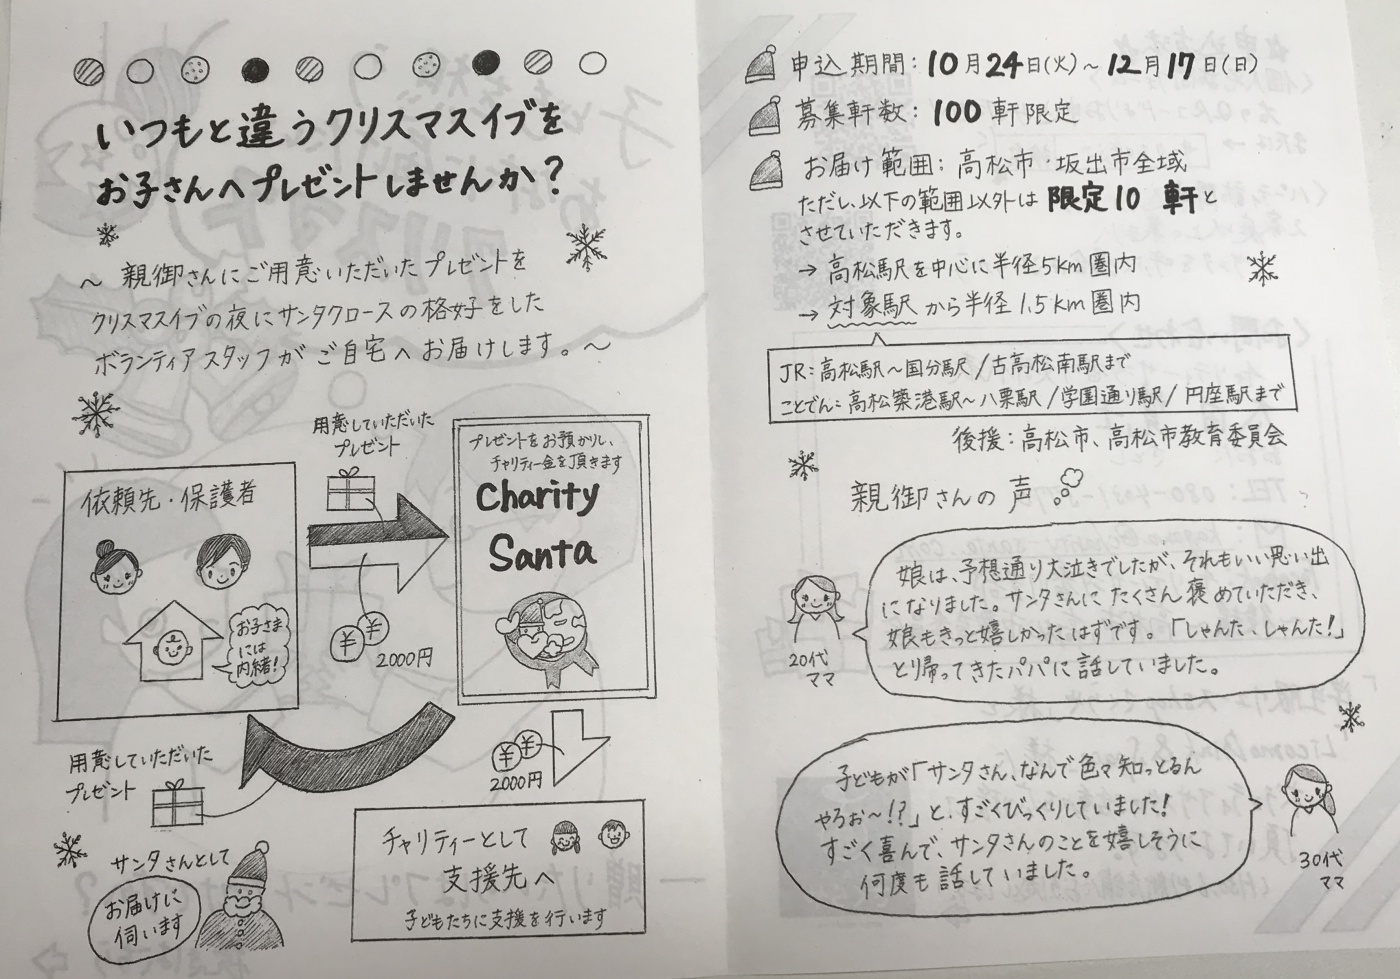 いつもと違うクリスマスイブを
お子さんへプレゼントしませんか?
～ 親御さんにご用意いただいたプレゼントを
クリスマスイブの夜にサンタクロースの格好をした
ボランティアスタッフがご自宅へお届けします。～
用意していただいた
プレゼント
依頼先・保護者
お子さま
には
内緒!
¥ ¥
2000円
プレゼントをお預かりし、
チャリティー金を頂きます
Charity
Santa
用意していただいた
プレゼント
¥ ¥
2000円
サンタさんとして
お届けに
伺います
チャリティーとして
支援先へ
子どもたちに支援を行います
申込期間: 10月24日(火)～12月17日(日)
募集軒数: 100軒限定
お届け範囲: 高松市・坂出市全域
ただし、以下の範囲以外は 限定10 軒と
させていただきます。
→ 高松駅を中心に半径5km圏内
→ 対象駅から半径1.5km圏内
JR:高松駅～国分駅/古高松南駅まで
ことでん:高松築港駅～八栗駅/学園通り駅/円座駅まで
後援:高松市、高松市教育委員会
親御さんの声
娘は、予想通り大泣きでしたが、それもいい思い出
になりました。サンタさんにたくさん褒めていただき、
娘もきっと嬉しかったはずです。「しゃんた、しゃんた!」
とり帰ってきたパパに話していました。
20代
ママ
子どもが「サンタさん、なんで色々知っとるん
やろぉ～!?」と、すごくびっくりしていました!
すごく喜んで、サンタさんのことを嬉しそうに
何度も話していました。
30代
ママ